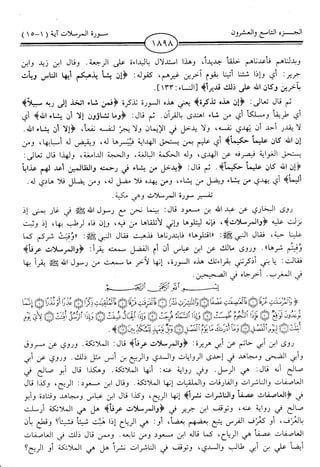 الجـــزء التاسع والعشرون
١٨٩٨
سورة المرسلات آية (١-١٥)
وبدلناهم فأعدناهم خلقاً جديداً، وهذا استدلال بالبداءة على الرجعة. وقال ابن زيد وابن
جرير: أي وإذا شئنا أتينا بقوم آخرين غيرهم، كقوله: ﴿إن يشأ يذهبكم أيها الناس ويأت
بآخرين وكان الله على ذلك قديراً﴾ [النساء: ١٣٣].
ثم قال تعالى: ﴿إن هذه تذكرة﴾ يعني هذه السورة تذكرة ﴿فمن شاء اتخذ إلى ربه سبيلاً﴾
أي طريقاً ومسلكاً أي من شاء اهتدى بالقرآن. ثم قال: ﴿وما تشاؤون إلا أن يشاء الله﴾ أي
لا يقدر أحد أن يهدي نفسه، ولا يدخل في الإيمان ولا يجر لنفسه نفعاً، ﴿إلا أن يشاء الله.
إن الله كان عليماً حكيماً﴾ أي عليم بمن يستحق الهداية فييسرها له، ويقيض له أسبابها، ومن
يستحق الغواية فيصرفه عن الهدى، وله الحكمة البالغة، والحجة الدامغة، ولهذا قال تعالى:
﴿إن الله كان عليماً حكيماً﴾. ثم قال: ﴿يدخل من يشاء في رحمته والظالمين أعد لهم عذاباً
أليماً﴾ أي يهدي من يشاء ويضل من يشاء، ومن يهده فلا مضل له، ومن يضلل فلا هادي له.
تفسير سورة المرسلات وهي مكية.
روى البخاري عن عبد الله بن مسعود قال: بينما نحن مع رسول الله ﷺ في غار بمنى إذ
نزلت عليه ﴿والمرسلات﴾، فإنه ليتلوها وإني لأتلقاها من فيه، وإن فاه لرطب بها، إذ وثبت
علينا حية، فقال النبي ﷺ: «اقتلوها» فابتدرناها فذهبت فقال النبي ﷺ: «وُقِيَتْ شركم كما
وُقيتُم شرها». وروى مالك عن ابن عباس أن أم الفضل سمعته يقرأ: ﴿والمرسلات عرفاً﴾
فقالت: يا بني أذكرتني بقراءتك هذه السورة، إنها لآخر ما سمعت من رسول الله ﷺ يقرأ بها
في المغرب. أخرجاه في الصحيحين.
روى ابن أبي حاتم عن أبي هريرة: ﴿والمرسلات عرفاً﴾ قال: الملائكة. وروي عن مسروق
وأبي الضحى ومجاهد في إحدى الروايات والسدي والربيع بن أنس مثل ذلك. وروي عن أبي
صالح أنه قال: هي الرسل. وفي رواية عنه: أنها الملائكة. وهكذا قال أبو صالح في
العاصفات والناشرات والفارقات والملقيات إنها الملائكة. وقال ابن مسعود: الريح، وكذا قال
في ﴿العاصفات عصفاً والناشرات نشراً﴾ إنها الريح، وكذا قال ابن عباس ومجاهد وقتادة وأبو
صالح في رواية عنه، وتوقف ابن جرير في ﴿والمرسلات عرفاً﴾ هل هي الملائكة أرسلت
بالعُرْف، أو كعرف الفرس يتبع بعضهم بعضاً، أو: هي الرياح إذا هبت شيئاً فشيئاً؟ وقطع بأن
العاصفات عصفاً هي الرياح، كما قاله ابن مسعود ومن تابعه. وممن قال ذلك في العاصفات
أيضاً علي بن أبي طالب والسدي، وتوقف في الناشرات نشراً هل هي الملائكة أو الريح؟